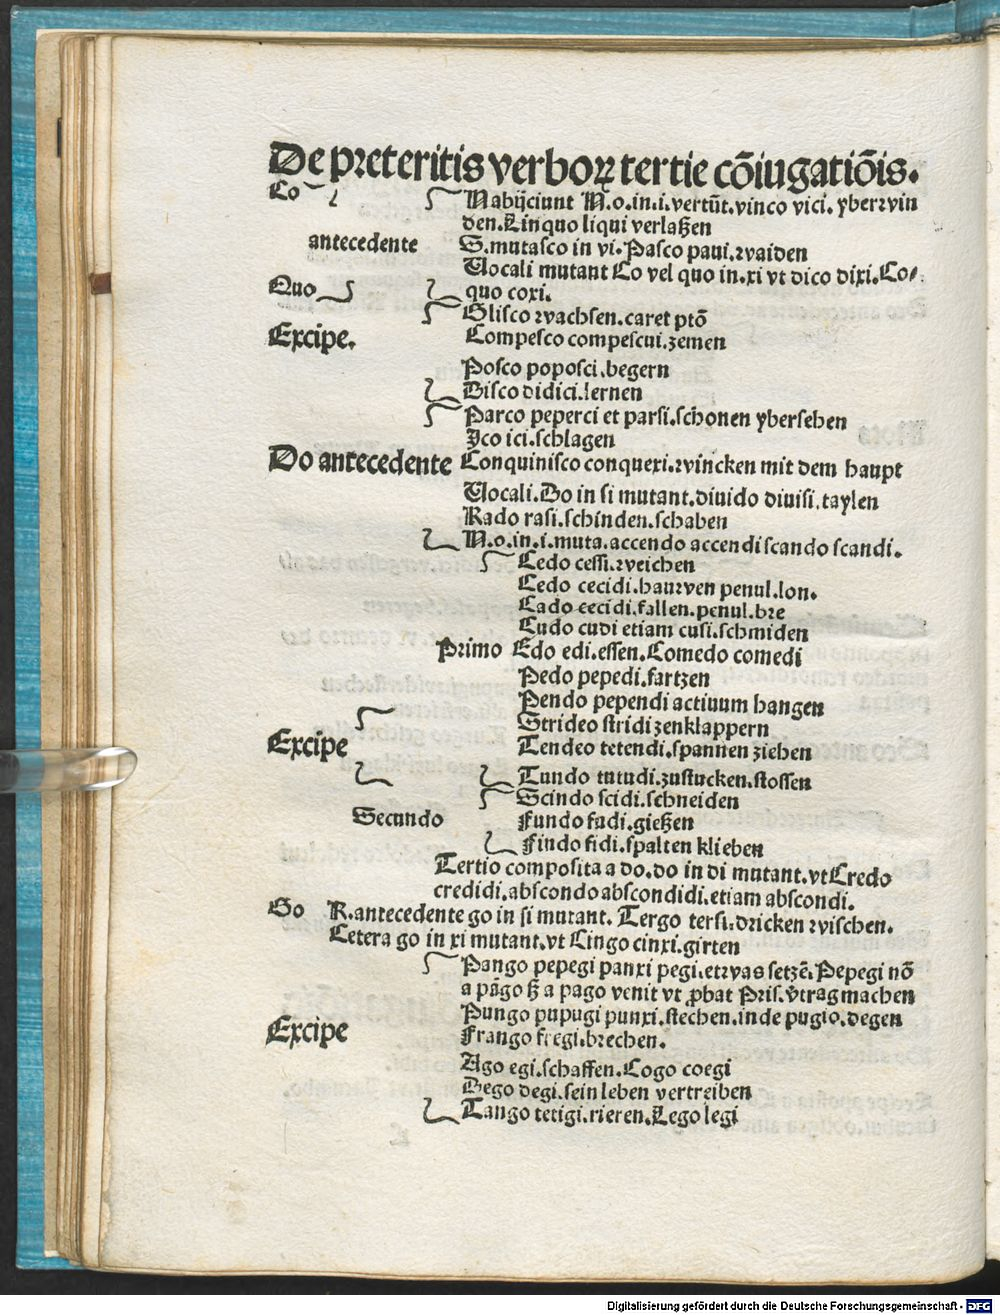 De preteritis verboꝝ tertie cōiugatiōis.
Co
Nabijciunt N.o.in.i.vertūt.vinco vici.ybervvin
den.Linquo liqui verlaßen
antecedente
S.mutasco in vi.Pasco paui.vvaiden
Uocali mutant Co vel quo in.xi vt dico dixi.Co⸗
Quo
quo coxi.
Glisco vvachsen.caret ptō
Excipe.
Compesco compescui.zemen
Posco poposci.begern
Disco didici.lernen
Parco peperci et parsi.schonen ybersehen
Ico ici.schlagen
Do antecedente
Conquinisco conquexi.vvincken mit dem haupt
Uocali.Do in si mutant.diuido diuisi.taylen
Rado rasi.schinden.schaben
N.o.in.i.muta.accendo accendi scando scandi.
Cedo cessi.vveichen
Cedo cecidi.haurven penul.lon.
Cado cecidi.fallen.penul.bre
Cudo cudi etiam cusi.schmiden
Primo
Edo edi.essen.Comedo comedi
Pedo pepedi.fartzen
Pendo pependi actiuum hangen
Strideo stridi zenklappern
Excipe
Tendeo tetendi.spannen ziehen
Tundo tutudi.zustucken.stossen
Scindo scidi.schneiden
Secundo
Fundo fudi.gießen
Findo fidi.spalten klieben
Tertio composita a do.do in di mutant.vt Credo
credidi.abscondo abscondidi.etiam abscondi.
Go
R.antecedente go in si mutant. Tergo tersi.dricken vvischen.
Cetera go in xi mutant.vt Cingo cinxi.girten
Pango pepegi panxi pegi.etvvas setzē.Pepegi nō
a pāgo ß a pago venit vt ꝓbat Pris.v̄trag machen
Pungo pupugi punxi.stechen.inde pugio.degen
Excipe
Frango fregi.brechen.
Ago egi.schaffen.Cogo coegi
Dego degi.sein leben vertreiben
Tango tetigi.rieren.Lego legi
Digitalisierung gefördert durch die Deutsche Forschungsgemeinschaft - DFG